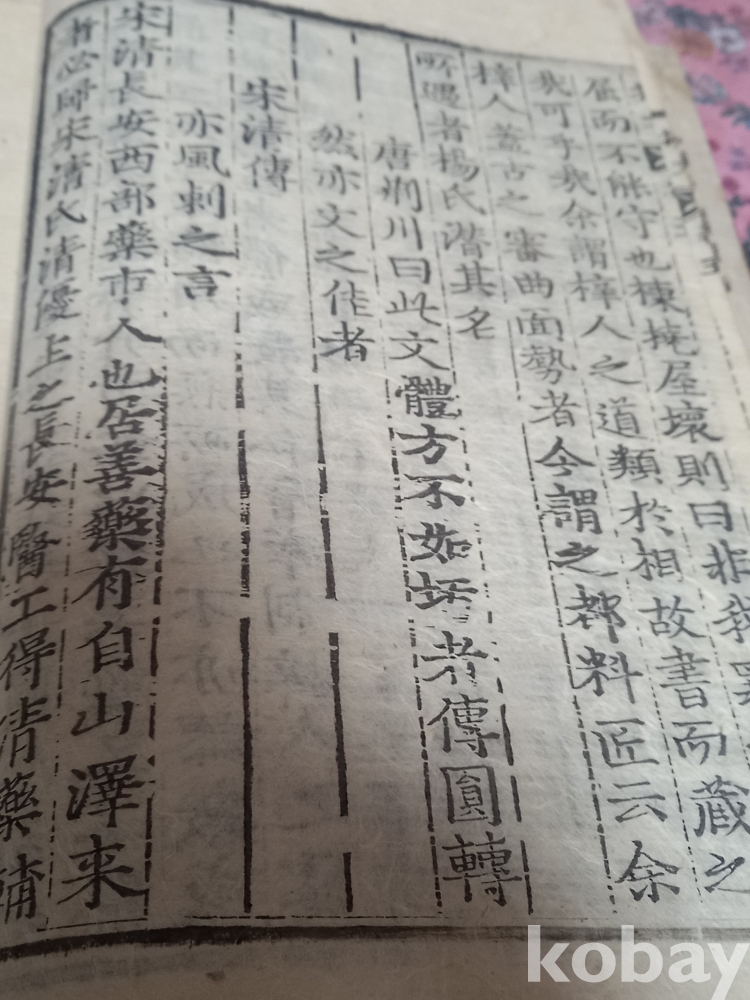 屈而不能守也棟撓屋壞則曰非我
哉可乎哉余謂梓人之道類於相故書而藏之
梓人蓋古之審曲面勢者今謂之都料匠云余
所遇者楊氏潛其名
唐荊川曰此文體方不如圬者傳圓轉
然亦文之佳者
宋清傳
亦風刺之言
宋清長安西部藥市人也居善藥有自山澤來
者必歸宋清氏清優主之長安醫工得清藥輔
kobay